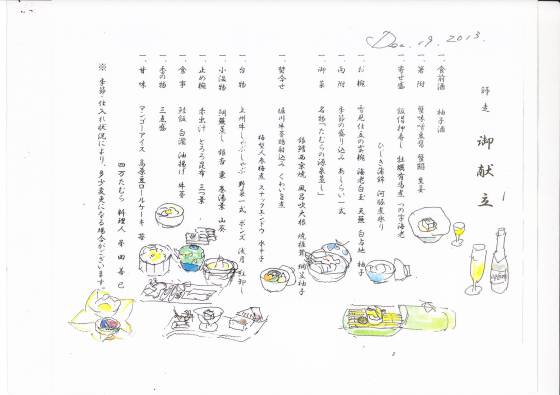 Dec. 19. 2013.
師走 御献立
一、食前酒 柚子酒
一、箸附 蟹味噌豆腐 蟹餡 生姜
一、寄せ盛 飯借押寿し 牡蠣有馬煮 つの字海老
ひじき蒲鉾 河豚煮凍り
一、お椀 雪見仕立の雲椀 海老白玉 天蕪 白占地 柚子
一、向附 季節の盛り込み あしらい一式
一、御菜 名物「たむらの源泉蒸し」
銀鱈西京焼 風呂吹大根 焼椎茸 網笠柚子
一、焚合せ 堀川牛蒡鶏射込み くわい旨煮
梅型人参梅煮 スナックエンドウ 水辛子
一、台物 上州牛しゃぶしゃぶ 野菜一式 ポンズ 浅月 紅卸し
一、小温物 胡羅蒸し 銀杏 東 巻湯葉 山葵
一、止め椀 赤出汁 とろろ昆布 三つ葉
一、食事 鮭飯 白滝 油揚げ 牛蒡
一、季の物 三点盛
一、甘味 マンゴーアイス 高原豆ロールケーキ 苺
※ 季節・仕入れ状況により、多少変更になる場合がございます。
四万たむら 料理人 星田善己